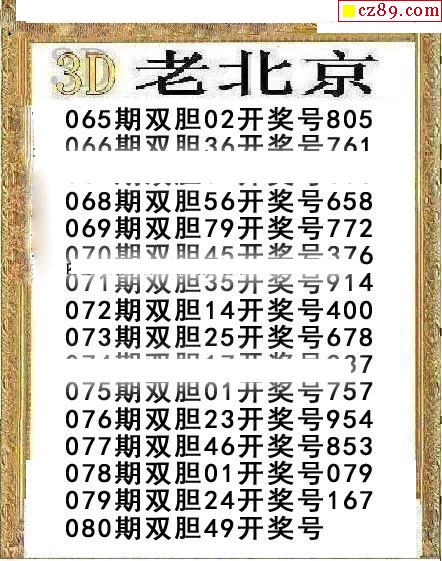 cz89.com
3D 老北京
065期双胆02开奖号805
066期双胆36开奖号761
068期双胆56开奖号658
069期双胆79开奖号772
070期双胆45开奖号376
071期双胆35开奖号914
072期双胆14开奖号400
073期双胆25开奖号678
075期双胆01开奖号757
076期双胆23开奖号954
077期双胆46开奖号853
078期双胆01开奖号079
079期双胆24开奖号167
080期双胆49开奖号